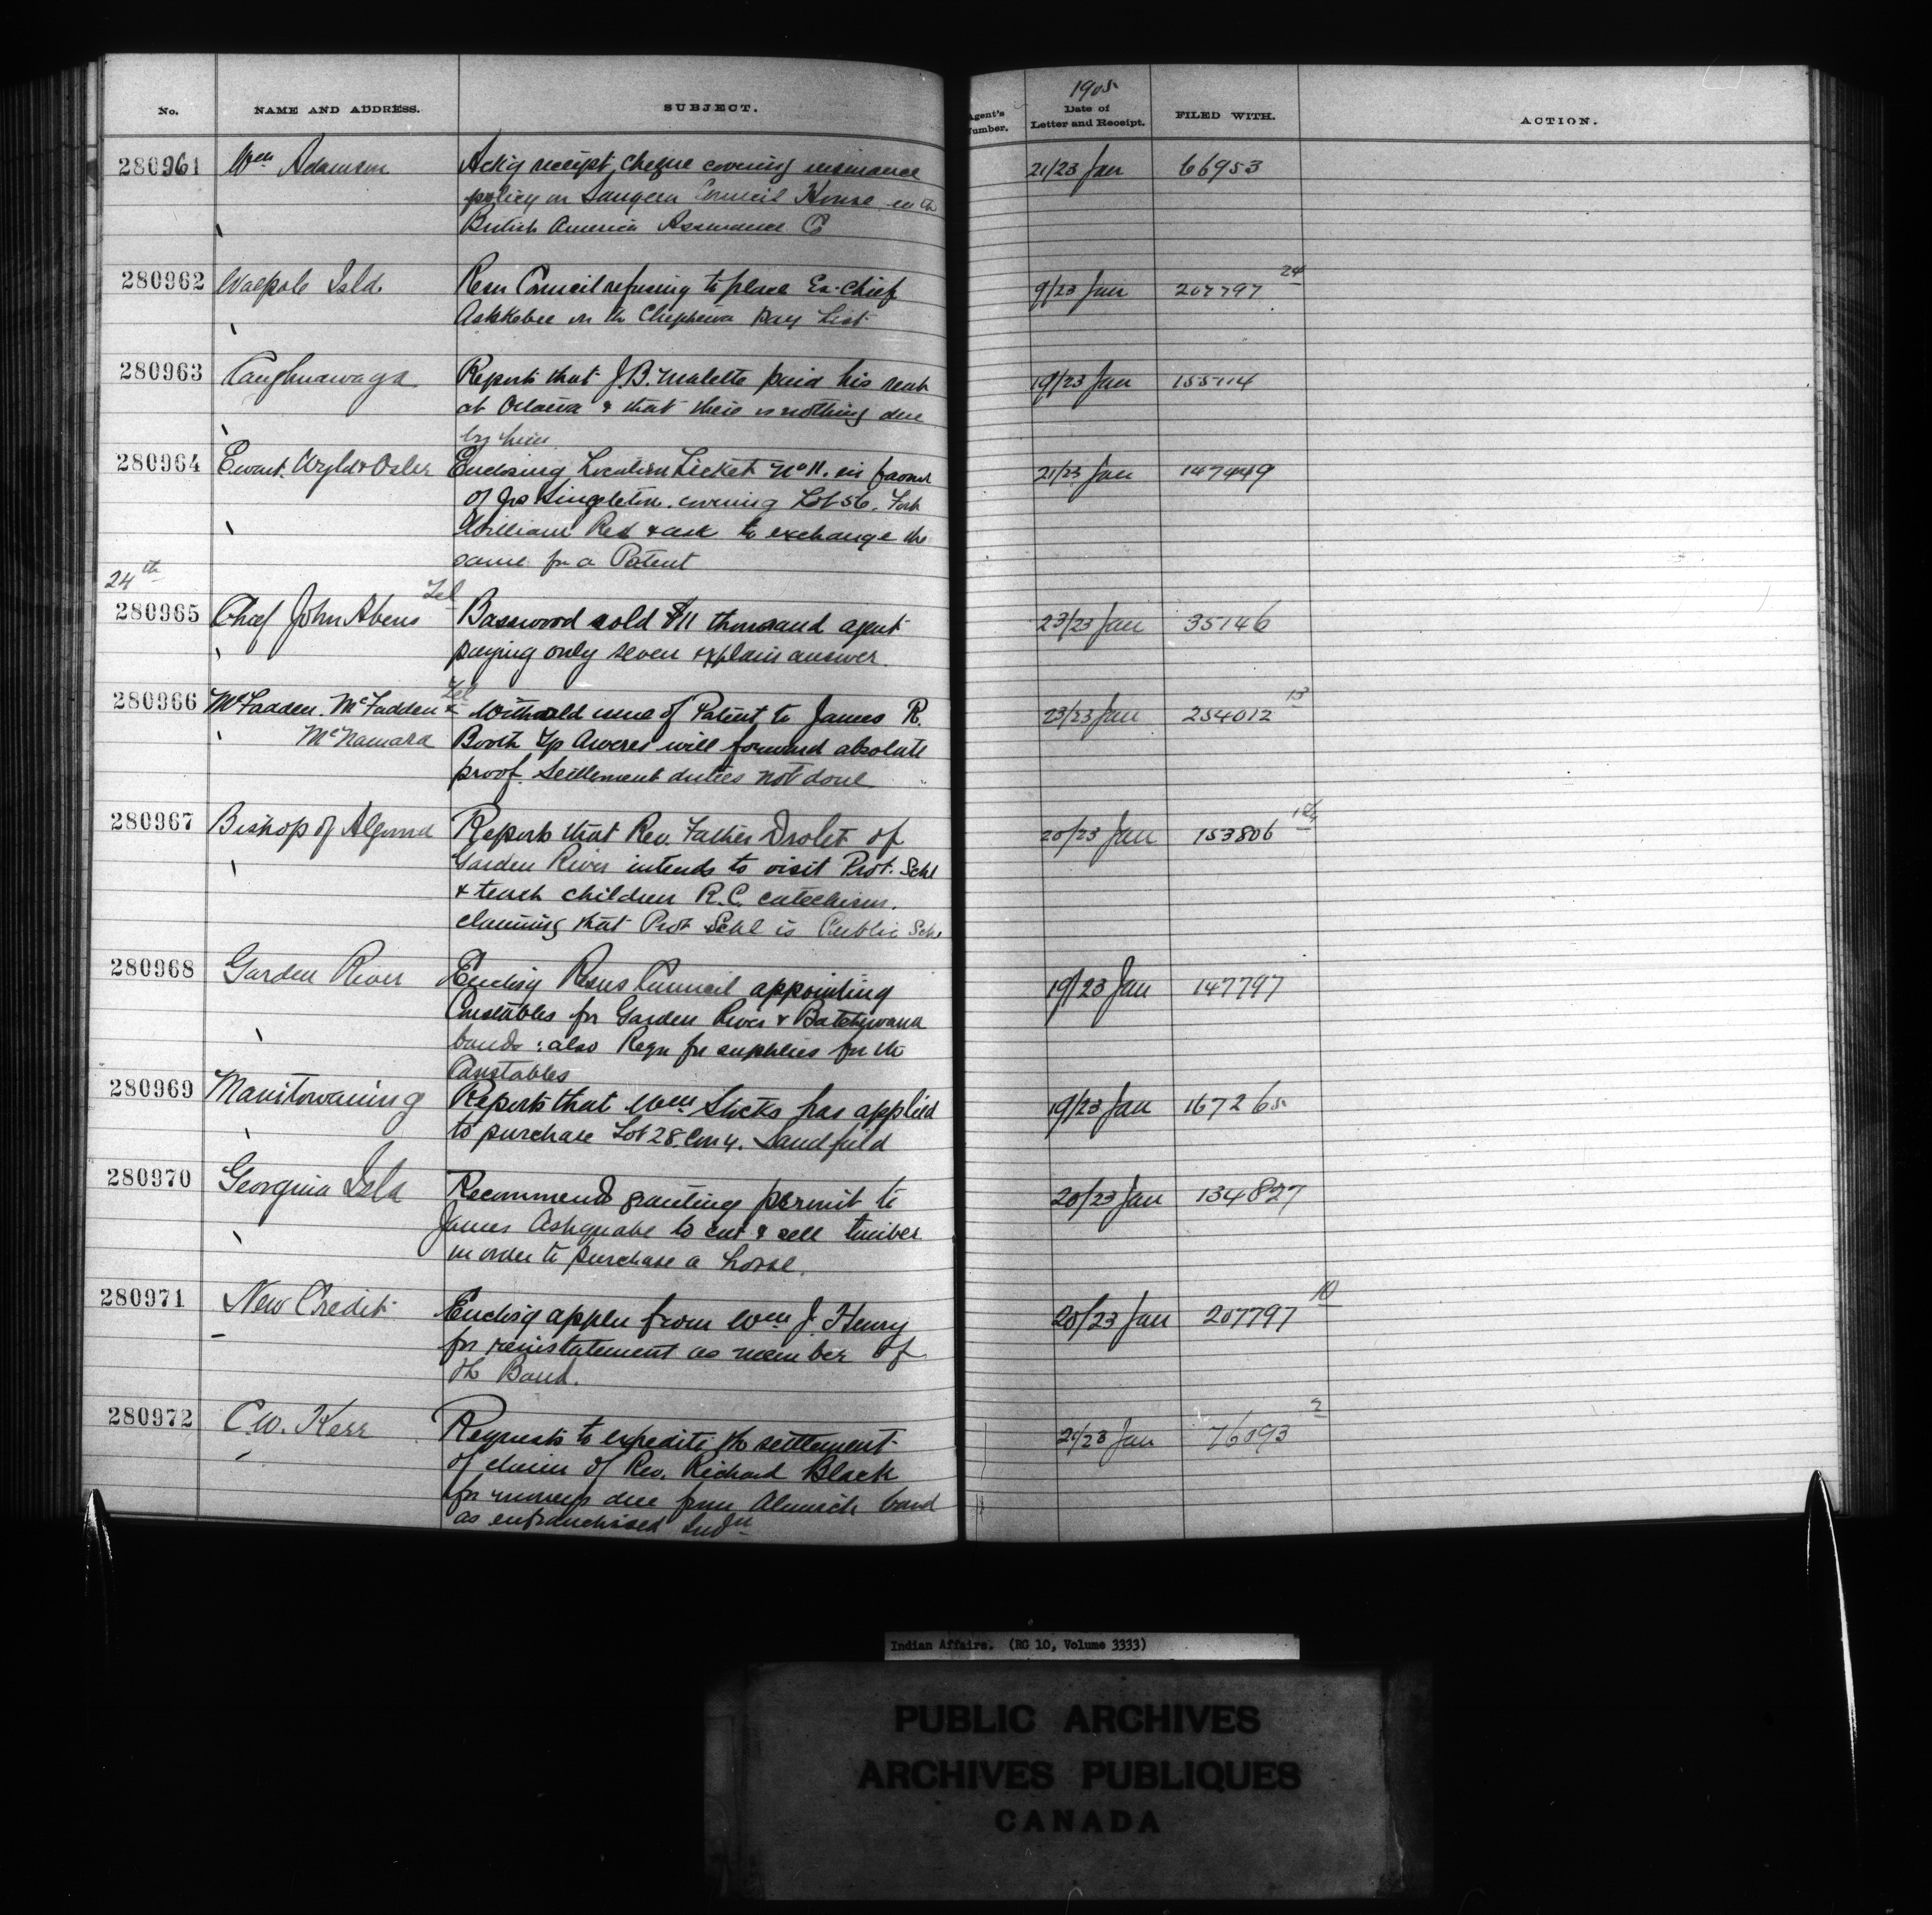 No. NAME AND ADDRESS. SUBJECT. Agent's Number. 1905 Date of Letter and Receipt. FILED WITH. ACTION.
280961 Wm Adamson Ackg receipt, cheque covering insurance 21/23 Jan 66953
policy on Saugeen Council House in the
British America Assurance Co
280962 Walpole Isld. Resn Council refusing to place Ex-Chief 9/23 Jan 207797 24
Ashkebee on the Chippewa Pay List
280963 Caughnawaga Reports that J. B. Malette paid his rent 19/23 Jan 155114
at Ottawa & that there is nothing due
by him
280964 Ewart. Wyld & Osler Enclosing Location Ticket No 11. in favour 21/23 Jan 147449
of Jas Singleton. covering Lot 56. Fort
William Res & ask to exchange the
same for a Patent
24th
280965 Chief John Abens Tel Basswood sold $11 thousand agent 23/23 Jan 35146
paying only seven explain answer.
280966 McFadden. McFadden & Tel Withold issue of Patent to James R. 23/23 Jan 254012 13
McNamara Booth Tp Aweres will forward absolute
proof. Settlement duties not done
280967 Bishop of Algoma Reports that Rev. Father Drolet of 20/23 Jan 153806
Garden River intends to visit Prot. Schl
& teach children R.C. catechism.
claiming that Prot Schl is Public Schl
280968 Garden River Enclsg Resns Council appointing 19/23 Jan 147797
Constables for Garden River & Batchewana
bands : also Reqn for supplies for the
Constables
280969 Manitowaning Reports that Wm Sheks has applied 19/23 Jan 167265
to purchase Lot 28. Con 4. Sandfield
280970 Georgina Isld Recommends granting permit to 20/23 Jan 134827
James Ashquabe to cut & sell timber
in order to purchase a horse.
280971 New Credit Enclsg appln from Wm J. Henry 20/23 Jan 207797 10
for reinstatement as member of
the Band.
280972 C. W. Kerr Requests to expedite the settlement 21/23 Jan 76093 2
of claim of Rev. Richard Black
for moneys due from Alnwick band
as enfranchised Indn
Indian Affairs. (RG 10, Volume 3333)
PUBLIC ARCHIVES
ARCHIVES PUBLIQUES
CANADA